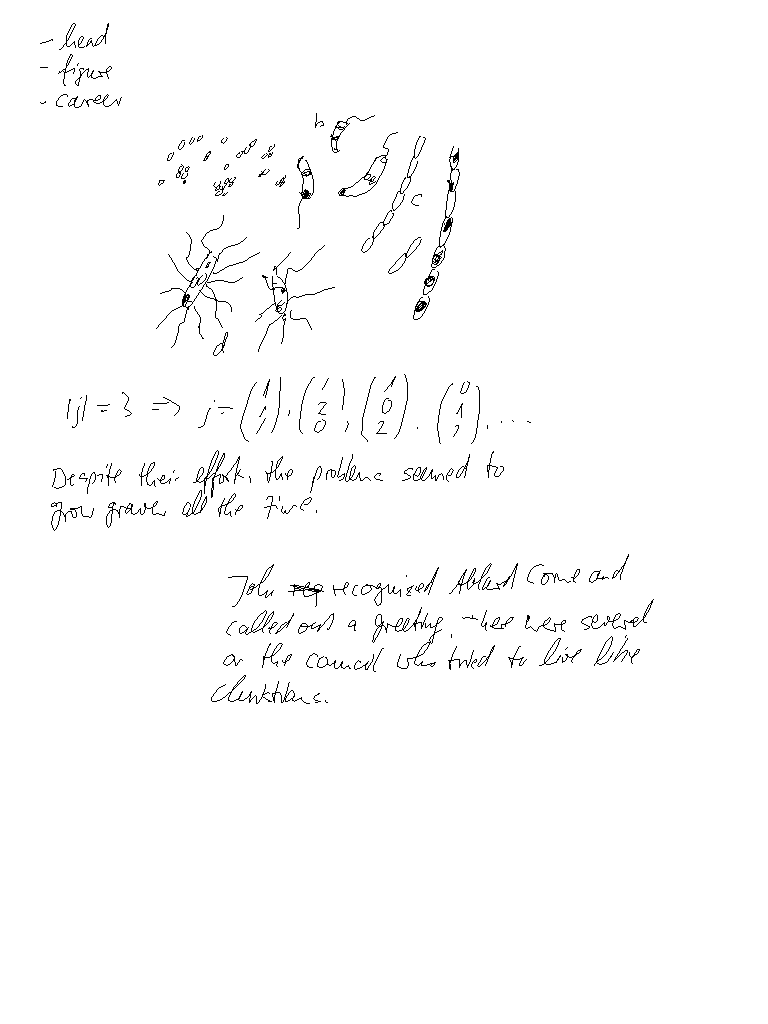 - head
- figure
- career
b
c
d
|j| = 3 => j = (1 1 1), (1 2 0), (1 0 2), (0 1 2), ...
Despite their efforts, the problems seemed to
grow graver all the time.
John recognized Abbard Come and
called out a greeting. There were several
on the council who tried to live like
Christians.